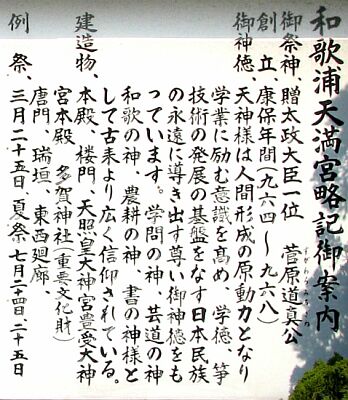 和歌浦天満宮略記御案内
御祭神、贈太政大臣一位 菅原道真公
すがわらみちざね
創立、康保年間(九六四〜九六八)
御神徳、天神様は人間形成の原動力となり
学業に励む意識を高め、学徳、筆
技術の発展の基盤をなす日本民族
の永遠に導き出す尊い御神徳をも
っています。学問の神、芸道の神
和歌の神、農耕の神、書の神様と
して古来より広く信仰されている。
建造物、本殿、楼門、天照皇大神宮豊受大神
宮本殿、多賀神社(重要文化財)
唐門、瑞垣、東西廻廊、
例祭、三月二十五日 夏祭 七月二十四、二十五日